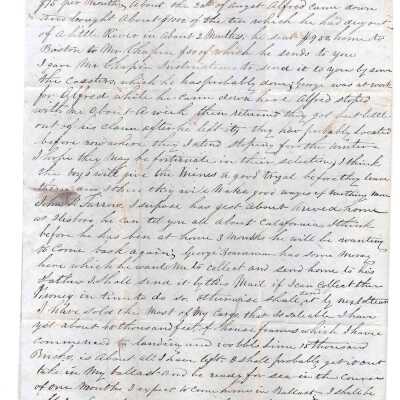 $75 per Month, About the 20th of Augst Alfred came down
and brought About $1100 of the ten which he had dug out
of A little River in about 2 Months. he sent $900 home to
Boston to Mr Chapin $800 of which he sends to you
I gave Mr Chapin Instructions to send it to you by some
the Coasters, which he has probably done, George was at work
for Alfred while he came down here Alfred stoped
with me About A week then returned they got but little
out of his claim after he left it they have probably located
before now where they intend stoping for the winter
I hope they May be fortunate in their selection, I think
the boys will give the Mines a good tryal before they leave
them, and I think they will Make good wages if nothing more
John Farrow, I supose has got about arived home
as he can tell you all about California I think
before he has ben at home 3 Months he will be wanting
to Come back again, George has some Money
here which he wants Me to collect and send home to his
Father I shall send it by this Mail if I can collect the
Money in time to do so, otherwise shall by next steam
I have sold the Most of My Cargo that is salable I have
yet about 40 thousand feet of house frames which I have
commenced landing and 15 thousand
Bricks, is about All I have left I shall probably get it out
take in My ballast And be ready for sea in the Course
of one Month, I expect to come home in Ballast, I shall be